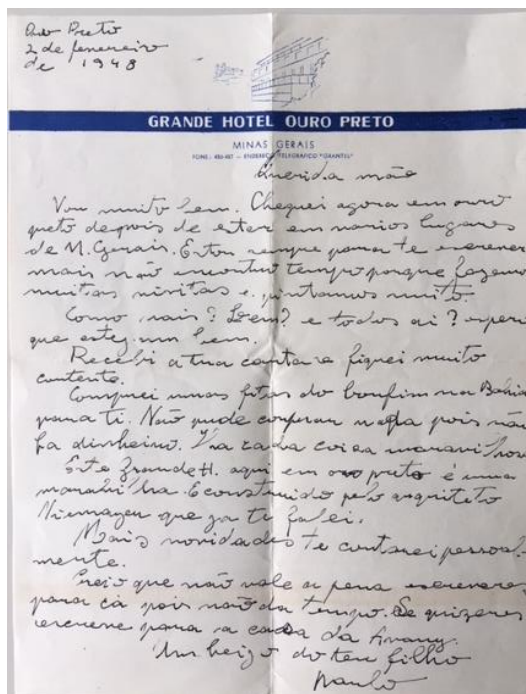 Ouro Preto
2 de fevereiro
de 1948
GRANDE HOTEL OURO PRETO
MINAS GERAIS
FONE: 486-487 — ENDEREÇO TELEGRÁFICO "GRANTEL"
Querida mãe
Vou muito bem. Cheguei agora em ouro
preto depois de estar em varios lugares
de M. Gerais. Estou sempre para te escrever
mais não encontro tempo porque fazemos
muitas visitas e pintamos muito.
Como vais? Bem? e todos ai? espero
que estejam bem.
Recebi a tua carta e fiquei muito
contente.
Comprei umas fitas do bonfim na Bahia
para ti. Não pude comprar nada pois não
ha dinheiro. Vi cada coisa maravilhosa
Este Grande H. aqui em ouro preto é uma
maravilha. E construido pelo arquiteto
Niemayer que ja te falei.
Mais novidades te contarei pessoal-
mente.
Creio que não vale a pena escreveres
para cá pois não da tempo. Se quizeres
escreve para a casa da
Um beijo do teu filho
Paulo